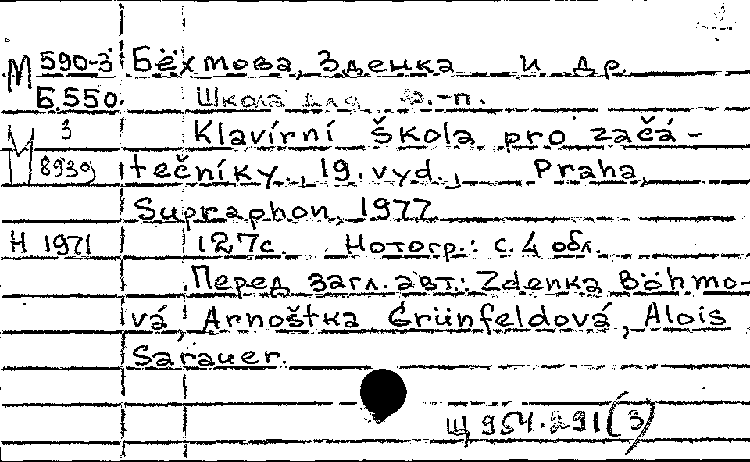 М 590-3 Бёхмова, Зденка и др.
Б.550. Школа для ф.-п.
М 3 Klavírní škola pro začá-
8939 tečníky., 19. vyd., Praha,
Supraphon, 1977
Н 1971 127с. Нотогр.: с. 4 обл.
Перед загл. авт.: Zdenka Böhmo-
vá, Arnoštka Grünfeldová, Alois
Sarauer.
Щ 954.291(3)